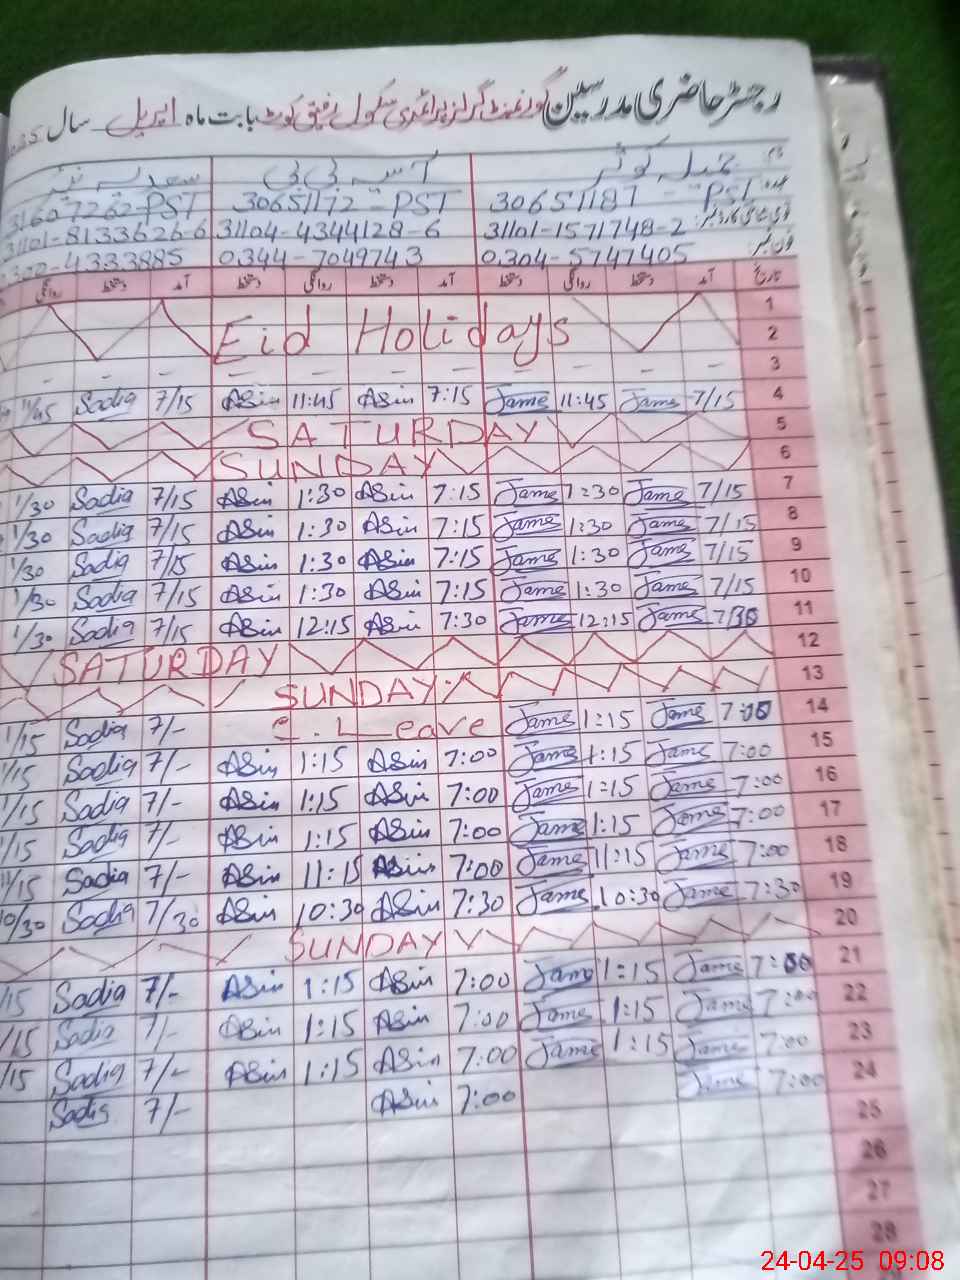 رجسٹر حاضری مدرسین گورنمنٹ گرلز پرائمری سکول رفیق کوٹ بابت ماہ اپریل سال
نام جمیلہ کوثر آسیہ بی بی سعدیہ
عہدہ 30651187 - PST 30651172 - PST 31607262-PST
قومی شناختی کارڈ نمبر 31101-1571748-2 31104-4344128-6 31101-8133626-6
فون نمبر 0304-5747405 0344-7049743 0300-4333885
تاریخ آمد دستخط روانگی دستخط آمد دستخط روانگی دستخط آمد دستخط روانگی
1
Eid Holidays 2
3
11/45 Sadia 7/15 ASin 11:45 ASin 7:15 Jame 11:45 Jame 7/15 4
SATURDAY 5
SUNDAY 6
1/30 Sadia 7/15 ASin 1:30 ASin 7:15 Jame 1:30 Jame 7/15 7
1/30 Sadia 7/15 ASin 1:30 ASin 7:15 Jame 1:30 Jame 7/15 8
1/30 Sadia 7/15 ASin 1:30 ASin 7:15 Jame 1:30 Jame 7/15 9
1/30 Sadia 7/15 ASin 1:30 ASin 7:15 Jame 1:30 Jame 7/15 10
1/30 Sadia 7/15 ASin 12:15 ASin 7:30 Jame 12:15 Jame 7/30 11
SATURDAY 12
SUNDAY 13
1/15 Sadia 7/- C. Leave Jame 1:15 Jame 7:00 14
1/15 Sadia 7/- ASin 1:15 ASin 7:00 Jame 1:15 Jame 7:00 15
1/15 Sadia 7/- ASin 1:15 ASin 7:00 Jame 1:15 Jame 7:00 16
1/15 Sadia 7/- ASin 1:15 ASin 7:00 Jame 1:15 Jame 7:00 17
11/15 Sadia 7/- ASin 11:15 ASin 7:00 Jame 11:15 Jame 7:00 18
10/30 Sadia 7/30 ASin 10:30 ASin 7:30 Jame 10:30 Jame 7:30 19
SUNDAY 20
/15 Sadia 7/- ASin 1:15 ASin 7:00 Jame 1:15 Jame 7:00 21
/15 Sadia 7/- ASin 1:15 ASin 7:00 Jame 1:15 Jame 7:00 22
/15 Sadia 7/- ASin 1:15 ASin 7:00 Jame 1:15 Jame 7:00 23
Sadia 7/- ASin 7:00 Jame 7:00 24
25
26
27
28
24-04-25 09:08